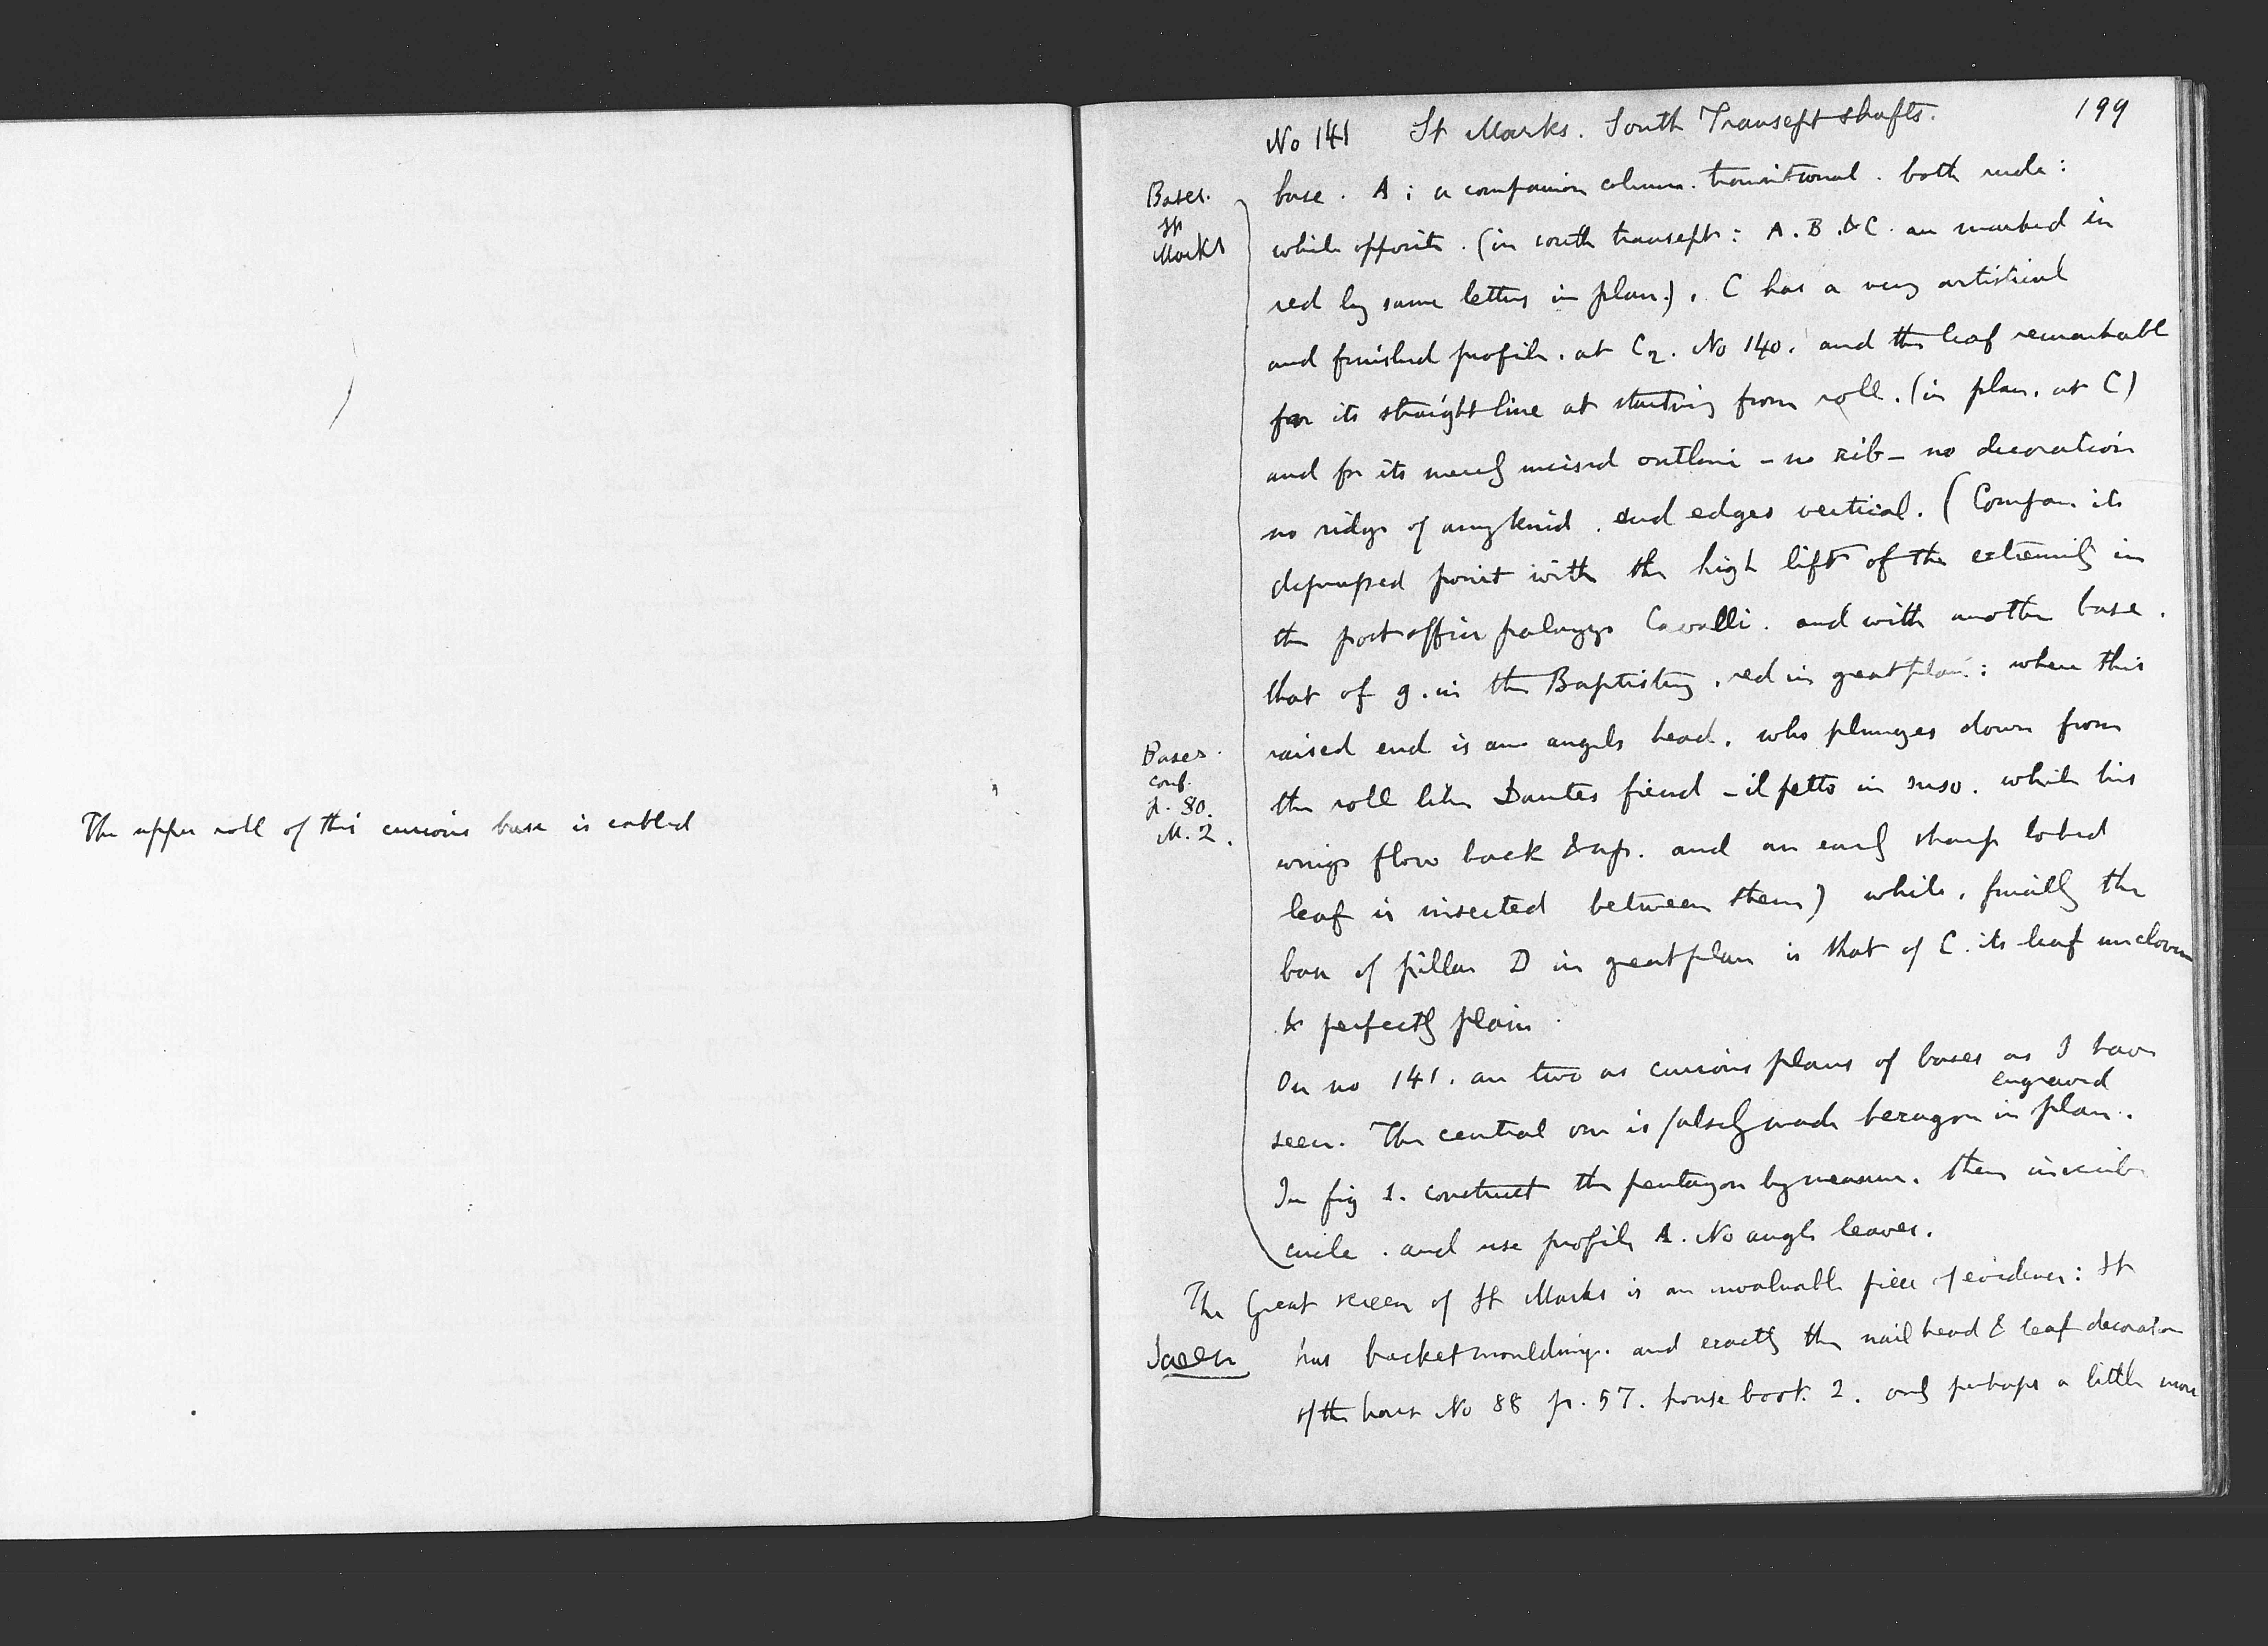 The upper roll of this curious base is cabled
No 141 St Marks. South Transept shafts.
199
Bases.
St
Marks
base. A; a companion column. transitional. both rude:
while opposite. (in south transept: A. B. & C. are marked in
red by same letters in plan.). C has a very artistical
and finished profile. at C2. No 140. and the leaf remarkable
for its straight line at starting from roll. (in plan. at C)
and for its merely incised outline - no rib - no decoration
no ridge of any kind. and edges vertical. (Compare its
depressed point with the high lift of the extremity in
the post office palazzo Cavalli. and with another base.
that of g. in the Baptistery. red in great plan: where this
Bases.
conf.
p. 80.
M. 2.
raised end is an angels head. who plunges down from
the roll like Dantes fiend - il petto in suso. while his
wings flow back & up. and an early sharp lobed
leaf is inserted between them) while. finally the
base of pillar D in great plan is that of C. its leaf uncloven
& perfectly plain.
On no 141. are two as curious plans of bases as I have
engraved
seen. The central one is falsely made hexagon in plan.
In fig 1. construct the pentagon by measure. then inscribe
circle. and use profile A. No angle leaves.
The Great screen of St Marks is an invaluable piece of evidence: It
Screen
has bracket mouldings. and exactly the nail head & leaf decoration
of the house No 88 p. 57. house book. 2. only perhaps a little more